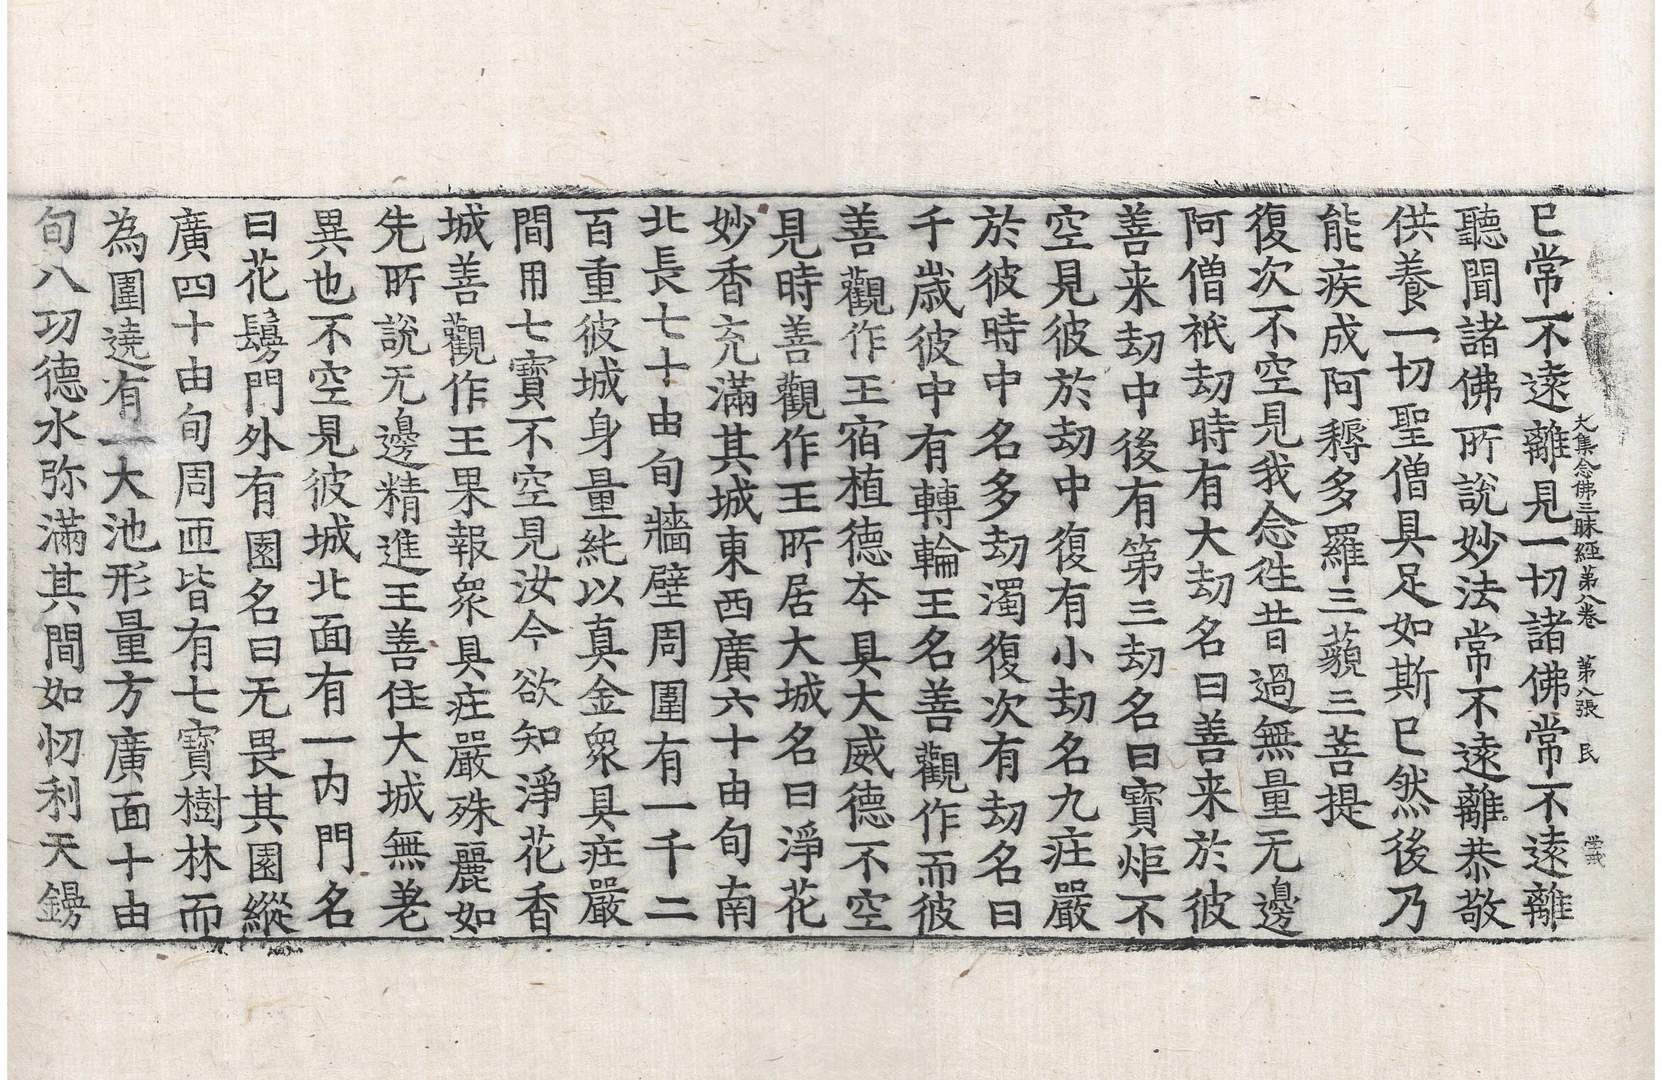 大集念佛三昧經第八卷　第八張　民
已常不逺離見一切諸佛常不逺離
聽聞諸佛所說妙法常不逺離恭敬
供養一切聖僧具足如斯已然後乃
能疾成阿耨多羅三藐三菩提
復次不空見我念徃昔過無量无邊
阿僧祇劫時有大劫名曰善来於彼
善来劫中後有第三劫名曰寶炬不
空見彼於劫中復有小劫名九庄嚴
於彼時中名多劫濁復次有劫名曰
千歲彼中有轉輪王名善觀作而彼
善觀作王宿植德夲具大威德不空
見時善觀作王所居大城名曰淨花
妙香充滿其城東西廣六十由旬南
北長七十由旬牆壁周圍有一千二
百重彼城身量純以真金衆具庄嚴
間用七寶不空見汝今欲知淨花香
城善觀作王果報衆具庄嚴殊麗如
先所說无邊精進王善住大城無老
異也不空見彼城北面有一内門名
曰花鬘門外有園名曰无畏其園縱
廣四十由旬周匝皆有七寶樹林而
為圍遶有一大池形量方廣面十由
旬八功德水弥滿其間如忉利天鏝